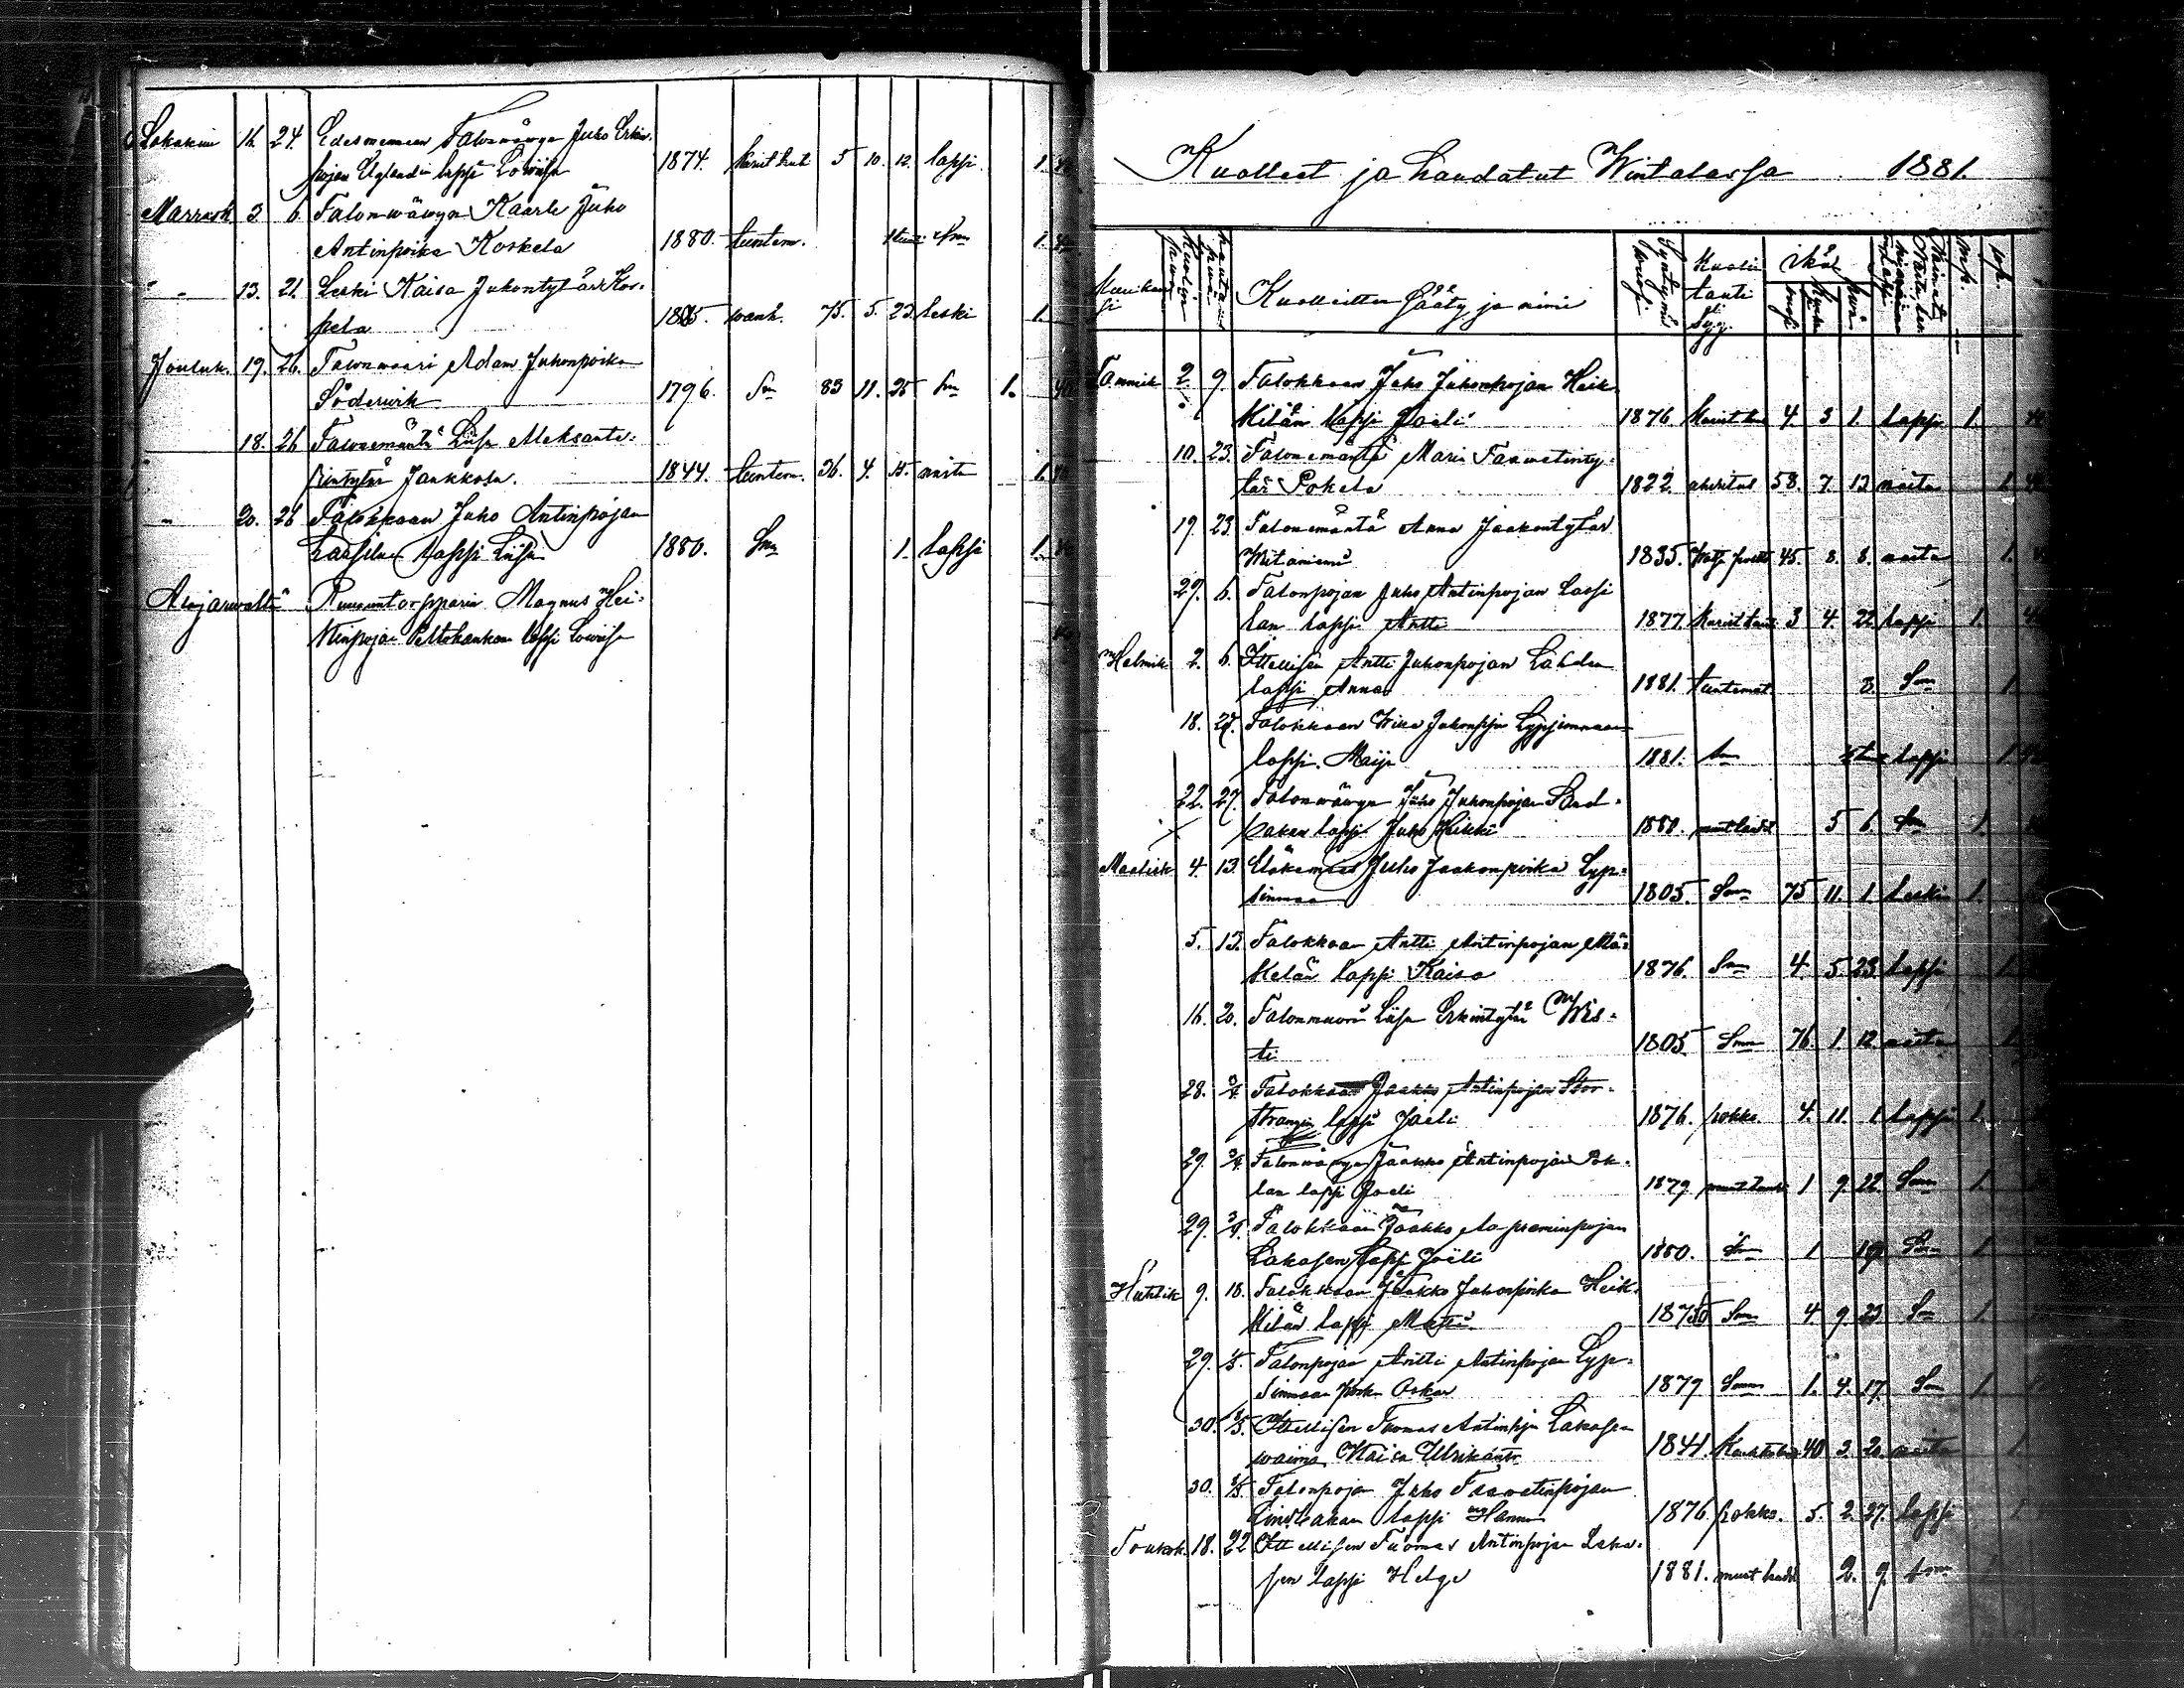 Lokakuu 16 24. Edesmenneen Talonwäwyn Juho Erkin-
pojan Uglandin lapsi Lowiisa 1874. kurist taut 5 10. 12. lapsi. 1. 40
Marrask 3 6. Talonwäwyn Kaarle Juho
Antinpoika Koskela 1880. tuntem. Sm 1. 40
" - 13. 21. Leski Kaisa Juhontytär Kos-
pela 1805. wanh. 75. 5. 23. leski 1.
Jouluk. 19. 26. Talonwaari Adam Juhonpoika
Söderwik 1796. Sm 83 11. 25 Sm 1. 40
18. 26 Talonemäntä Liisa Aleksante-
rintytär Jaakkola. 1844. tuntem. 36. 4. 15. naitu 1. 40
" 20. 26 Talokkaan Juho Antinpojan
Laasilan lapsi Liisa 1880. Sm 1. lapsi 1. 40
Ruununtorpparin Magnus Hei-
kinpojan Peltokankan lapsi Lowiisa 40
Kuolleet ja haudatut Wintalassa 1881.
Kuukau
si Kuolin
päiwä hauta
us päiwä Kuolleitten Sääty ja nimi Syntymä
wuosi. Kuolin
tauti
Syy. ikä
wuosi kuuk. päiw. mp. wp.
Tammik 2. 9. Talokkaan Juho Juhonpojan Heik-
kilän lapsi Joeli 1876 kurist tau 4. 3 1. lapsi 1. 40
10. 23. Talonemäntä Maria Taawetinty-
tär Pokela 1822. ahdistus 58. 7. 13 naitu 1. 40
19. 23. Talonemäntä Anna Jaakontytär
Witaniemi 1835. 45. 8. 8. naitu 1.
29. 6. Talonpojan Juho Antinpojan Lassi
lan lapsi Antti 1877. kurist taut 3 4. 22. lapsi 1. 40
Helmik. 2. 6. Itsellisen Antti Juhonpojan Lahden
lapsi Anna 1881. tuntemat. 8. Sm 1.
18. 27. Talokkaan Wika Juhonpjn Lypsinmaan
lapsi Maija 1881. Sm lapsi 1.
22. 27. Talonwäwyn Juho Juhonpojan Sand-
backan lapsi Juho Heikki 1880. muut taudit 5 6. Sm 1.
Maalisk 4. 13. Eläkemies Juho Jaakonpoika Lyp-
sinmaa 1805. Sm 75 11. 1. leski 1.
5. 13. Talokkaan Antti Antinpojan Mä-
kelän lapsi Kaisa 1876. Sm 4 5. 23. lapsi 1.
16. 20. Talonmuori Liisa Erkintytär Wis-
ti 1805. Sm 76. 1. 12. naitu 1.
28. 3/4 Talokkaan Jaakko Antinpojan Stor-
strangin lapsi Joeli 1876. rokko. 4. 11. 1. lapsi 1.
29. 3/4. Talonwäwyn Jaakko Antinpojan Pok-
lan lapsi Joeli 1879 muut taudit 1 9. 22. Sm 1.
29. 3/4. Talokkaan Jaakko
Lakasen lapsi Joeli 1880. Sm 1 19. Sm 1.
Huhtik 9. 18. Talokkaan Jaakko Juhonpoika Heik-
kilän lapsi Matti. Sm 4 9. 23 Sm 1.
29. 1/5. Talonpojan Antti Antinpojan Lyp-
sinmaan poika Oskar 1879 Sm 1. 4. 17. Sm 1.
30. 8/5. Itsellisen Tuomas Antinpjn Lakasen
waimo Maisa Ulrikantr. 1841. 40 3. 20. naitu 1.
30. 8/5. Talonpojan Juho Taawetinpojan
Lindbackan lapsi Hanna 1876. rokko. 5. 2. 27. lapsi 1.
Toukok. 18. 22 Itsellisen Tuomas Antinpojan Laka-
sen lapsi Helga 1881. muut taudit 2. 9. Sm 1.